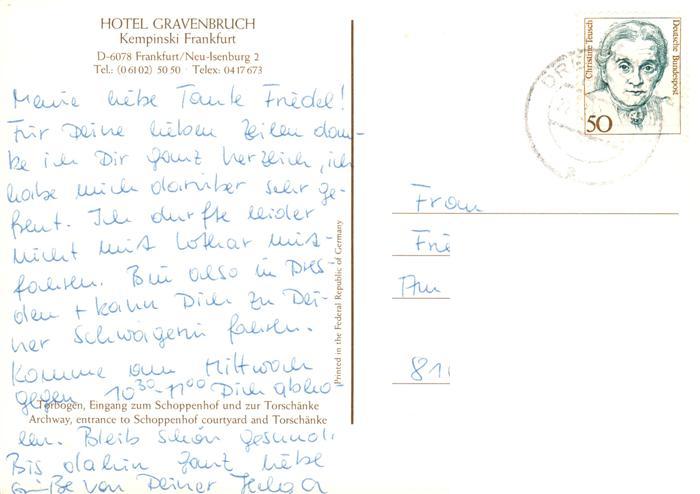 HOTEL GRAVENBRUCH
Kempinski Frankfurt
D-6078 Frankfurt/Neu-Isenburg 2
Tel.: (06102) 5050 · Telex: 0417673
Meine liebe Tante Friedel!
Für Deine lieben Zeilen dan-
ke ich Dir ganz herzlich, ich
habe mich darüber sehr ge-
freut. Ich durfte leider
nicht mit Lothar mit-
fahren. Bin also in Dres-
den + kann Dich zu Dei-
ner Schwägerin fahren.
Komme am Mittwoch
gegen 10³⁰-11⁰⁰ Dich abho-
Torbogen, Eingang zum Schoppenhof und zur Torschänke
Archway, entrance to Schoppenhof courtyard and Torschänke
len. Bleib schön gesund.
Bis dahin ganz liebe
Grüße von Deiner
Printed in the Federal Republic of Germany
Christine Teusch
Deutsche Bundespost
50
DR
Frau
Frie
Am
81